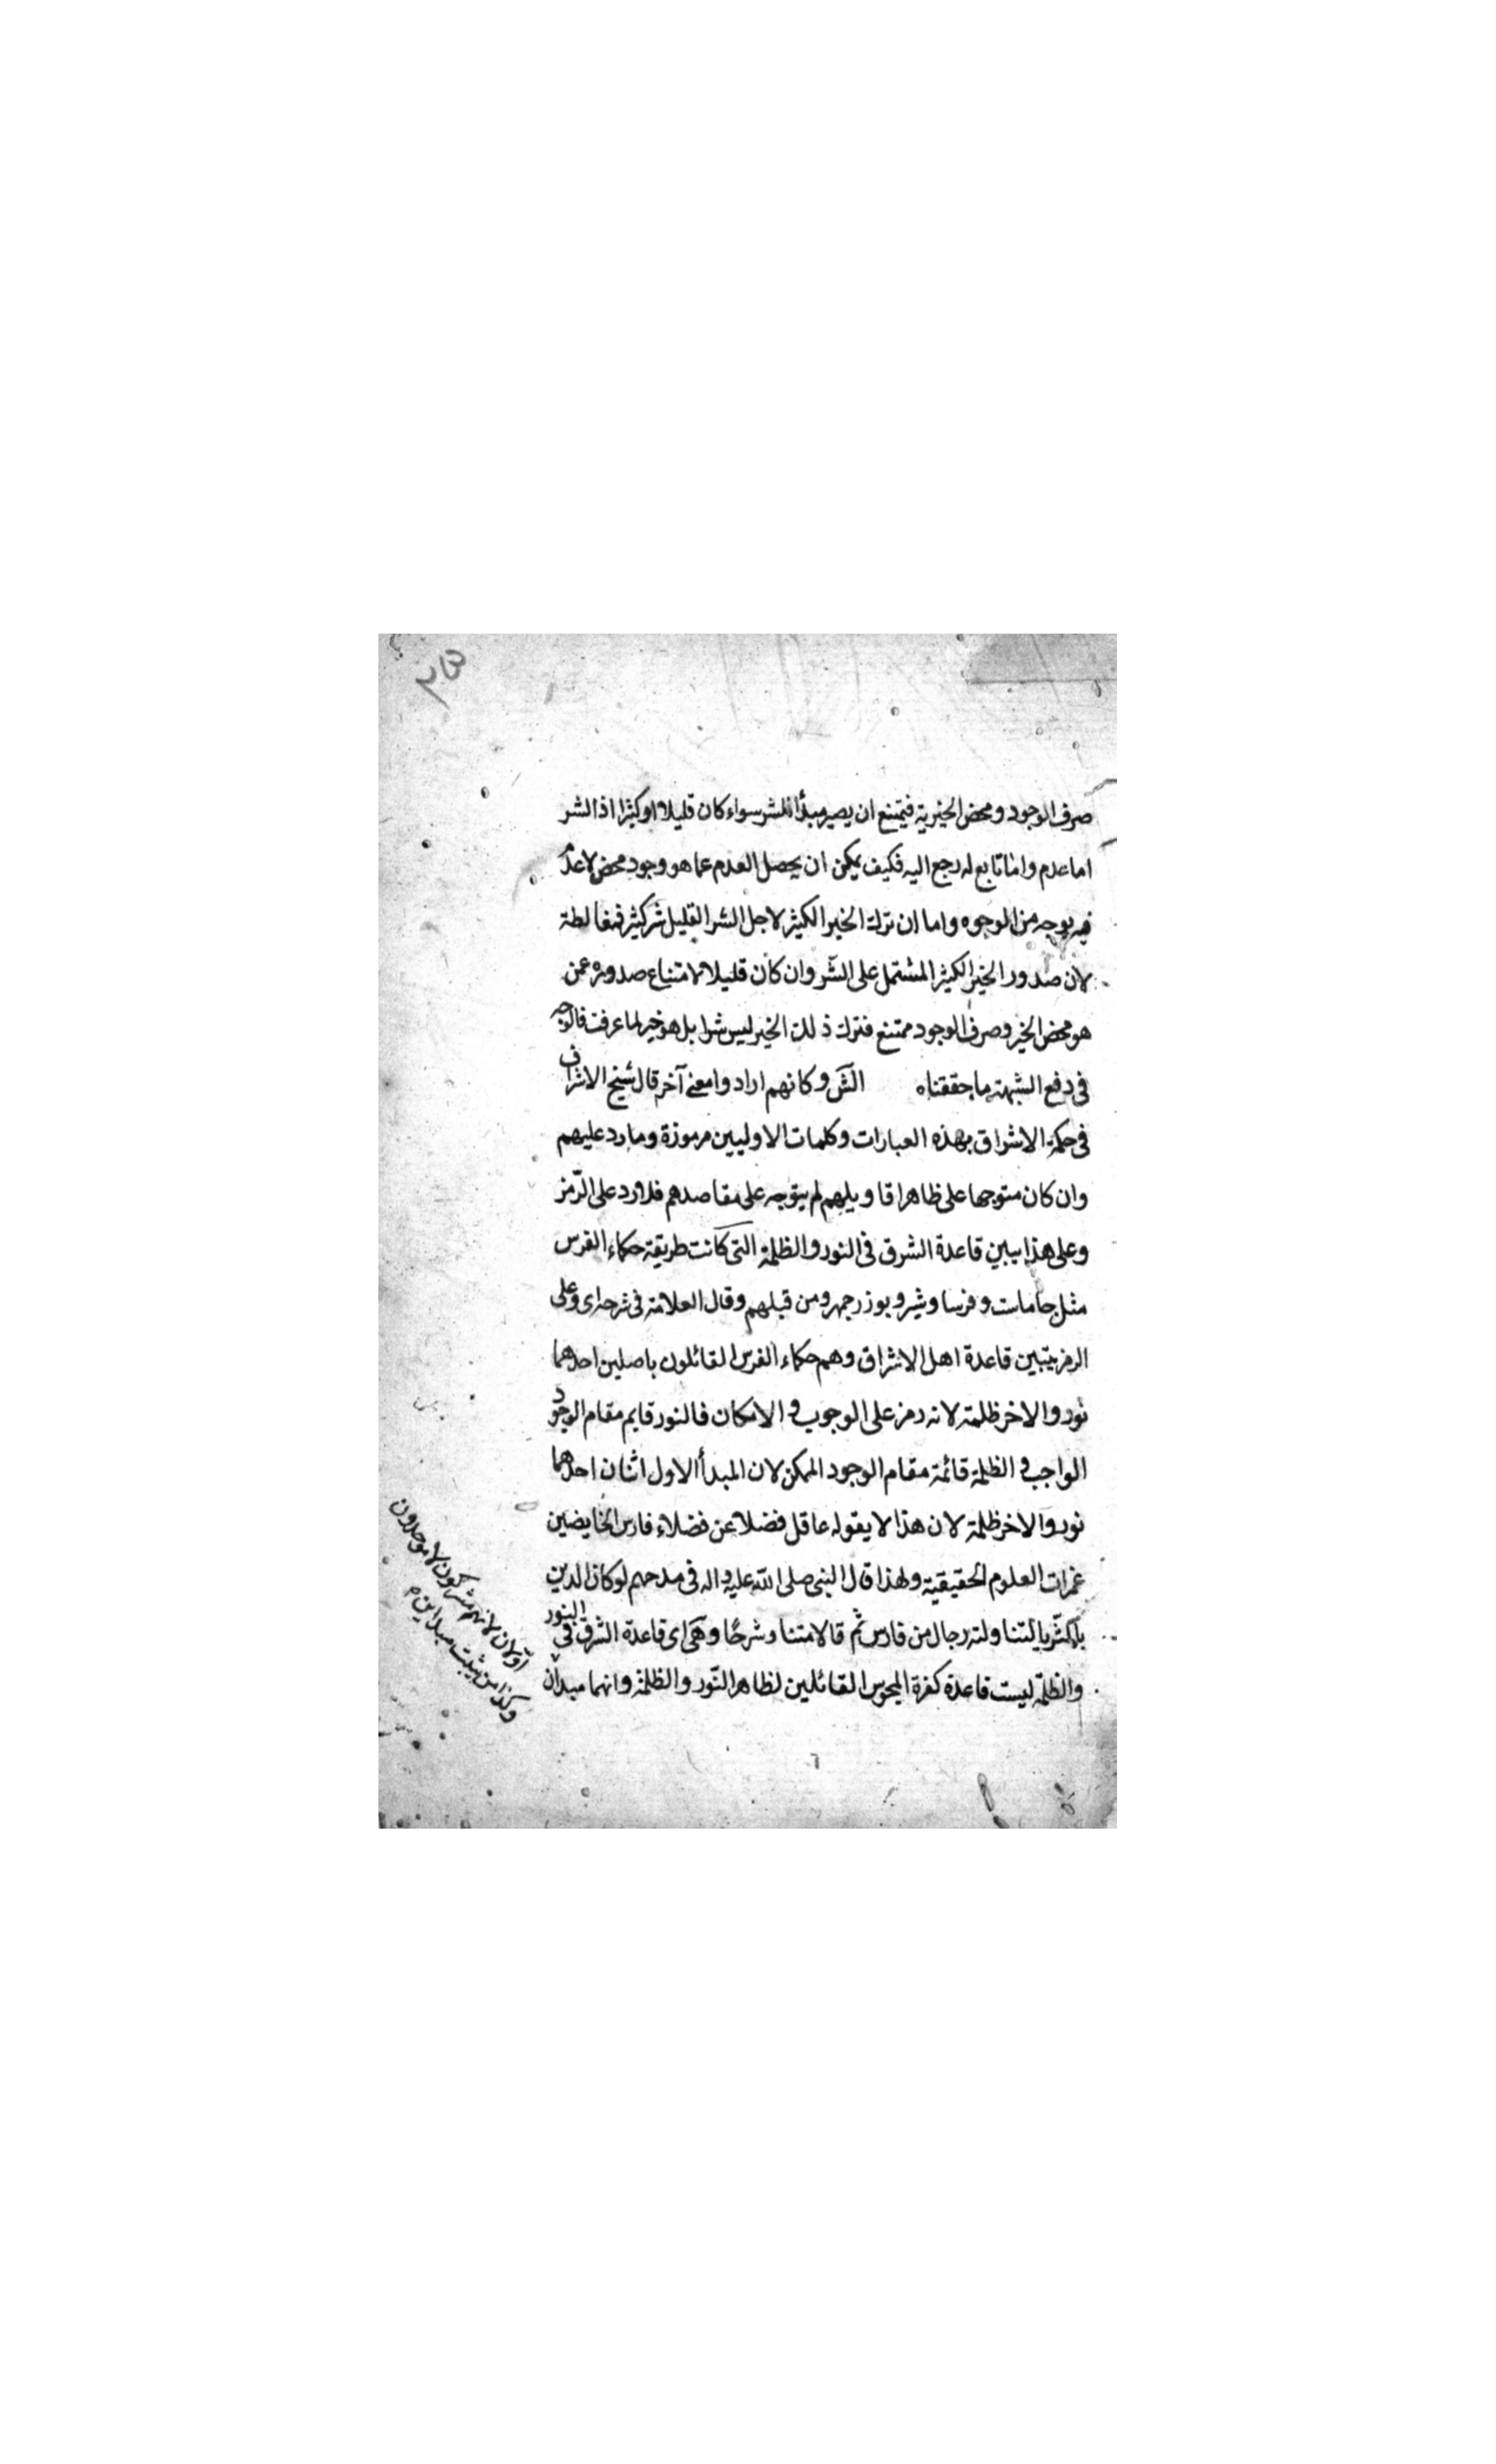 صرف الوجود ومحض الخيرية فيمتنع ان يصير مبدأ للشر سواء كان قليلا او كثيرا اذ الشر
اما عدم واما تابع له رجع اليه فكيف يمكن ان يحصل العدم عما هو وجود محض لا عدم
فيه بوجه من الوجوه واما ان ترك الخير الكثير لاجل الشر القليل شر كثير فمغالطة
لان صدور الخير الكثير المشتمل على الشر وان كان قليلا لامتناع صدوره عمن
هو محض الخير وصرف الوجود ممتنع فترك ذلك الخير ليس شرا بل هو خير لما عرفت فالوجه
فى دفع الشبهة ما حققناه الش وكانهم ارادوا معنى آخر قال شيخ الاشراق
فى حكمة الاشراق بهذه العبارات وكلمات الاوليين مرموزة وما رد عليهم
وان كان متوجها على ظاهر اقاويلهم لم يتوجه على مقاصدهم فلا رد على الرمز
وعلى هذا يبين قاعدة الشرق فى النور والظلمة التى كانت طريقة حكماء الفرس
مثل جاماست وفرساوشير وبوزرجمهر ومن قبلهم وقال العلامة فى شرحه اى وعلى
الرمز يتبين قاعدة اهل الاشراق وهم حكماء الفرس القائلون باصلين احدهما
نور والاخر ظلمة لانه رمز على الوجوب و الامكان فالنور قايم مقام الوجود
الواجب و الظلمة قائمة مقام الوجود الممكن لان المبدأ الاول اثنان احدهما
نور والاخر ظلمة لان هذا لا يقوله عاقل فضلا عن فضلاء فارس الخايضين
غمرات العلوم الحقيقية ولهذا قال النبى صلى الله عليه واله فى مدحهم لو كان الدين
بالثريا لتناولته رجال من فارس ثم قالا متنا وشرحا وهى اى قاعدة الشرق فى النور
والظلمة ليست قاعدة كفرة المجوس القائلين لظاهر النور والظلمة وانهما مبدآن
اولان لانهم مشركون لا موحدون
وكذا من يثبت مبداين م